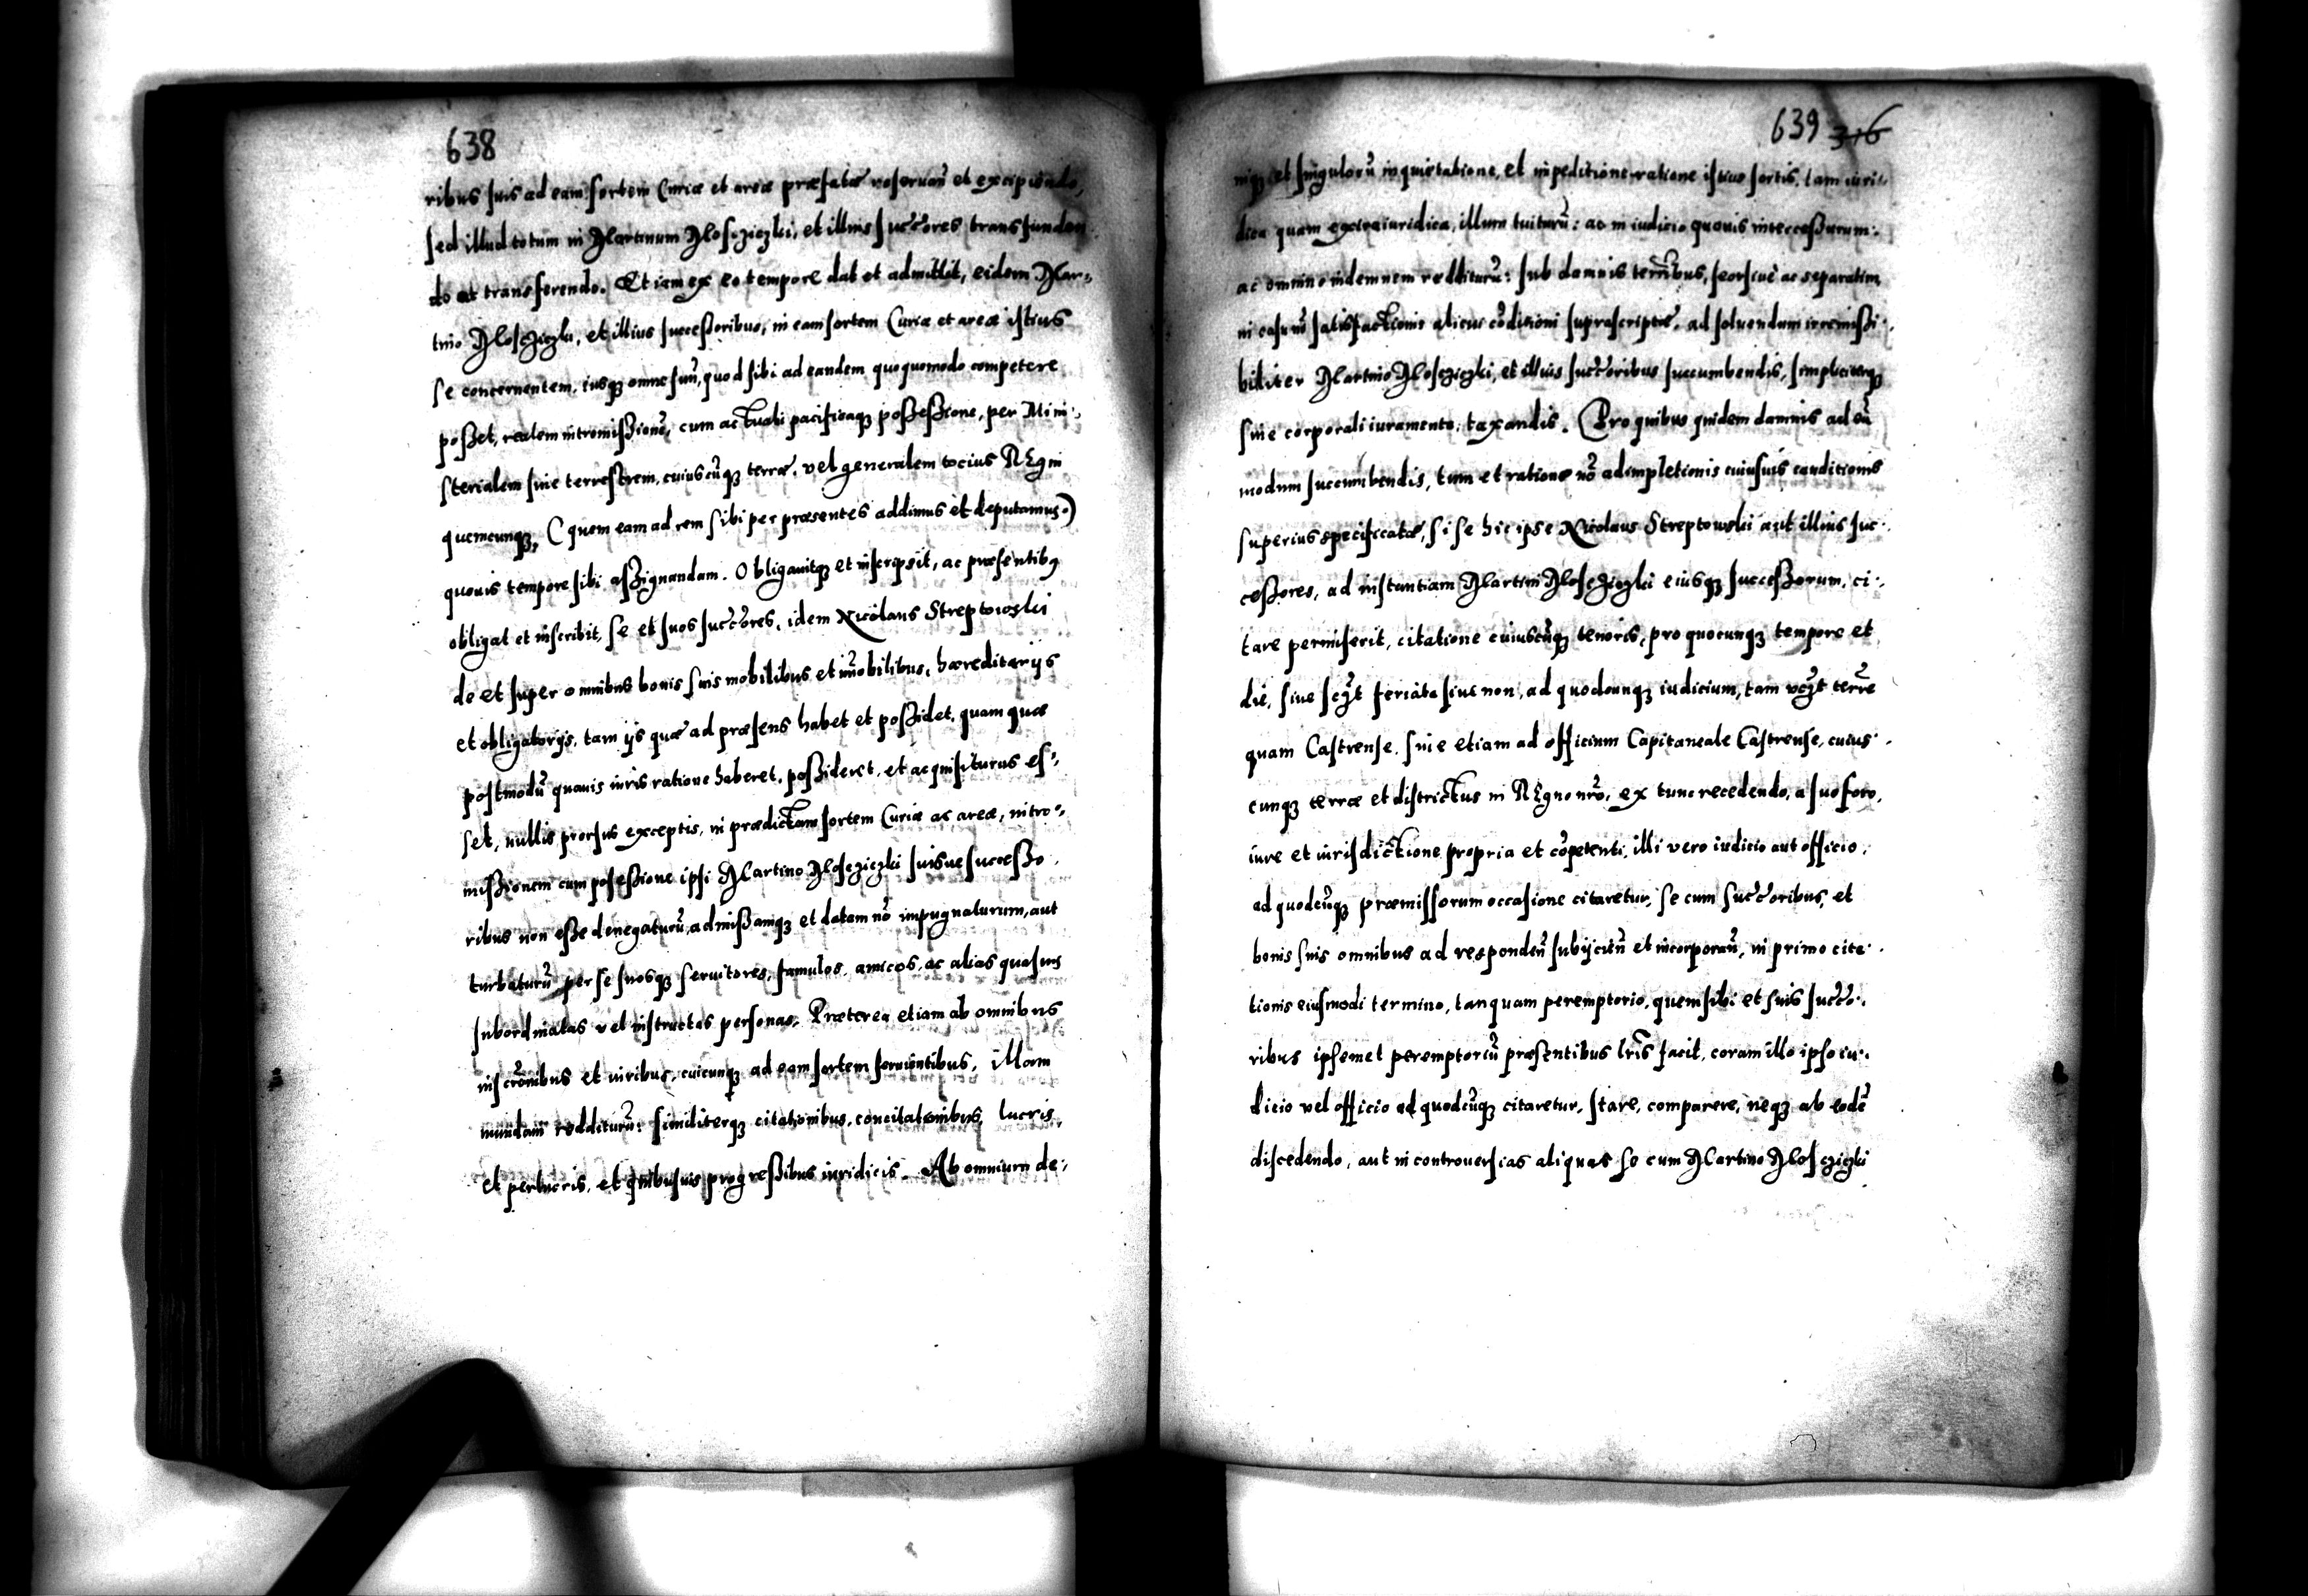 638
ribus suis ad eam sortem Curiæ et areæ præfatæ reseruañ et excipiendo,
sed illud totum in Martinum Mloschiczki, et illius succ̃ores transfunden
do ac transferendo. Et iam ex eo tempore dat et admittit, eidem Mar-
tino Mloscziczki, et illius successoribus, in eam sortem Curiæ et areæ istius
se concernentem, iusq̃ omne suũ, quod sibi ad eandem quoquomodo competere
posset, realem intromissionẽ, cum actuali pacificaq̃ possessione, per Mini-
sterialem siue terrestrem, cuiuscũq̃ terræ, vel generalem tocius REgni
quemcunq̃, (quem eam ad rem sibi per præsentes addimus et deputamus.)
quouis tempore sibi assignandam. Obligauitq̃ et inscripsit, ac præsentibꝰ
obligat et inscribit, se et suos succ̃ores, idem Nicolaus Streptowski
de et super omnibus bonis suis mobilibus et im̃obilibus, hæreditarijs
et obligatorijs, tam ijs quæ ad præsens habet et possidet, quam quæ
postmodũ quauis iuris ratione haberet, possideret, et acquisiturus es-
set, nullis prorsus exceptis, in prædictam sortem Curiæ ac areæ, intro-
missionem cum posessione ipsi Martino Mloscziczki suisue successo
ribus non esse denegaturũ, admissamq̃ et datam nõ impugnaturum, aut
turbaturũ per se suosq̃ seruitores, famulos, amicos, ac alias quasuis
subordinatas vel instructas personas. Præterea etiam ab omnibus
inscrõnibus et iuribus, cuicunq̃ ad eam sortem seruientibus, illam
mundam redditurũ: similiterq̃ citationibus, concitationibus, lucris,
et perlucris, et quibusuis progressibus iuridicis. Ab omnium de-
639 316
niq̃ et singulorũ inquietatione, et inpeditione ratione istius sortis, tam iuri-
dica quam extraiuridica, illum tuiturũ: ac in iudicio quouis intercessurum:
ac omnino indemnem redditurũ: sub damnis terr̃ibus, seorsiuè ac separatim,
in casu nõ satisfactionis alicui cõditioni suprascriptæ, ad soluendum irremissi-
biliter Martino Mlosczizki, et illius succ̃oribus succumbendis, simpliciterq̃
sine corporali iuramento, taxandis. Pro quibus quidem damnis ad eũ
modum succumbendis, tum et ratione nõ adimpletionis cuiusuis conditionis
superius specificatæ, si se hic ipse Nicolaus Streptowski aut illius suc-
cessores, ad instantiam Martini Mlosczizki eiusq̃ successorum, ci-
tare permiserit, citatione cuiuscũq̃ tenoris, pro quocunq̃ tempore et
die, siue scz̃t feriata siue non, ad quodcunq̃ iudicium, tam vcz̃t terr̃e
quam Castrense, siue etiam ad officium Capitaneale Castrense, cuius-
cunq̃ terræ et districtus in REgno nr̃o, ex tunc recedendo, a suo foro,
iure et iurisdictione propria et cõpetenti, illi vero iudicio aut officio,
ad quodcũq̃ præmissorum occasione citaretur, se cum succ̃oribus, et
bonis suis omnibus ad respondeñ subijcieñ et incorporañ, in primo cita-
tionis eiusmodi termino, tanquam peremptorio, quem sibi et suis succ̃o-
ribus ipsemet peremptoriũ præsentibus lr̃is facit, coram illo ipso iu-
dicio vel officio ad quodcũq̃ citaretur, stare, comparere, neq̃ ab eodẽ
discedendo, aut in controuersias aliquas se cum Martino Mlosczizki